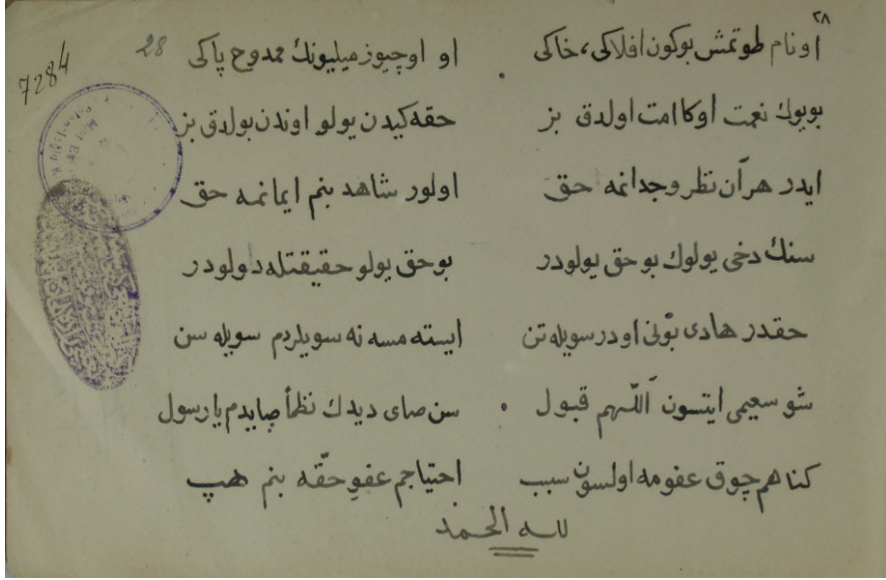 ٢٨
28
7284
او نام طوتمش بوكون افلاكى، خاكى او اوچيوز ميليونك ممدوح پاكى
بويوك نعمت اوكا امت اولدق بز حقه كيدن يولو اوندن بولدق بز
ايدر هر آن نظر وجدانمه حق اولور شاهد بنم ايمانمه حق
سنك دخى يولوك بو حق يولودر بو حق يولو حقيقتله دولودر
حقدر هادى بونى اودر سويله تن ايسته مسه نه سويلردم سويله سن
شو سعيمى ايتسون اللهم قبول سن صاى ديدك نظمأ صايدم يا رسول
كناهم چوق عفومه اولسون سبب احتياجم عفو حقّه بنم هپ
لله الحمد